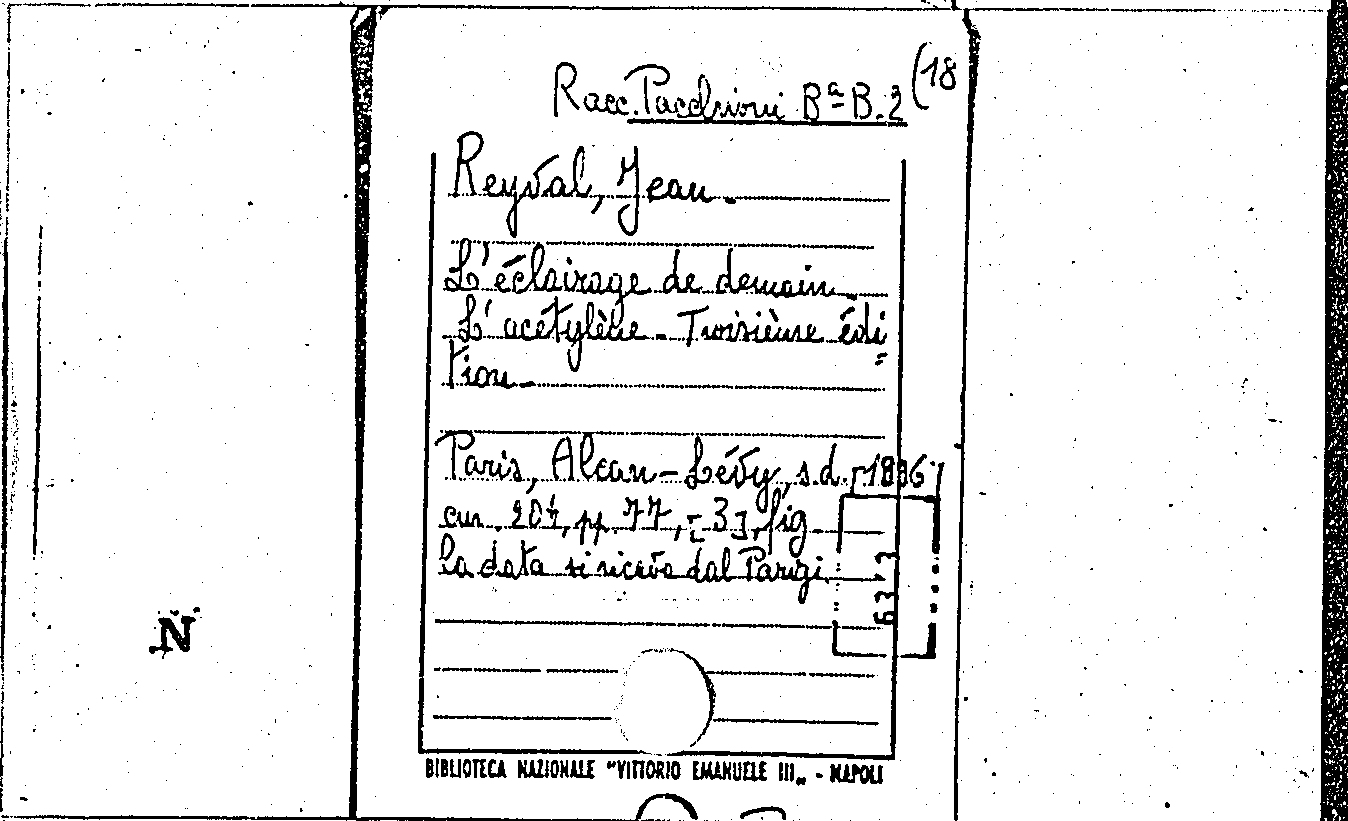 Racc. Pacchioni Bª B. 2 (18
Reyval, Jean.
L'éclairage de demain.
L'acétylène - Troisième édi=
tion -
Paris, Alcan-Lévy, s.d. [1896]
cm. 20½, pp. 77, [3], fig.
la data si ricava dal Parigi
6373
N
BIBLIOTECA NAZIONALE "VITTORIO EMANUELE III„ - NAPOLI